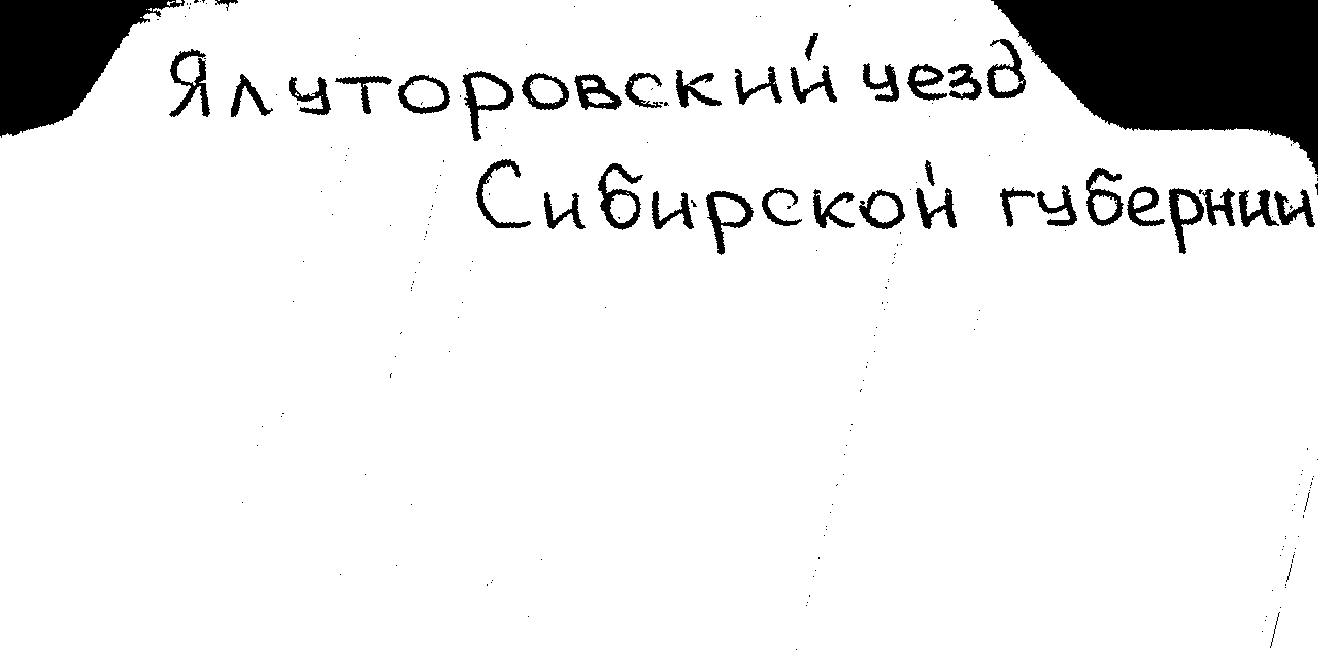 Ялуторовский уезд
Сибирской губернии